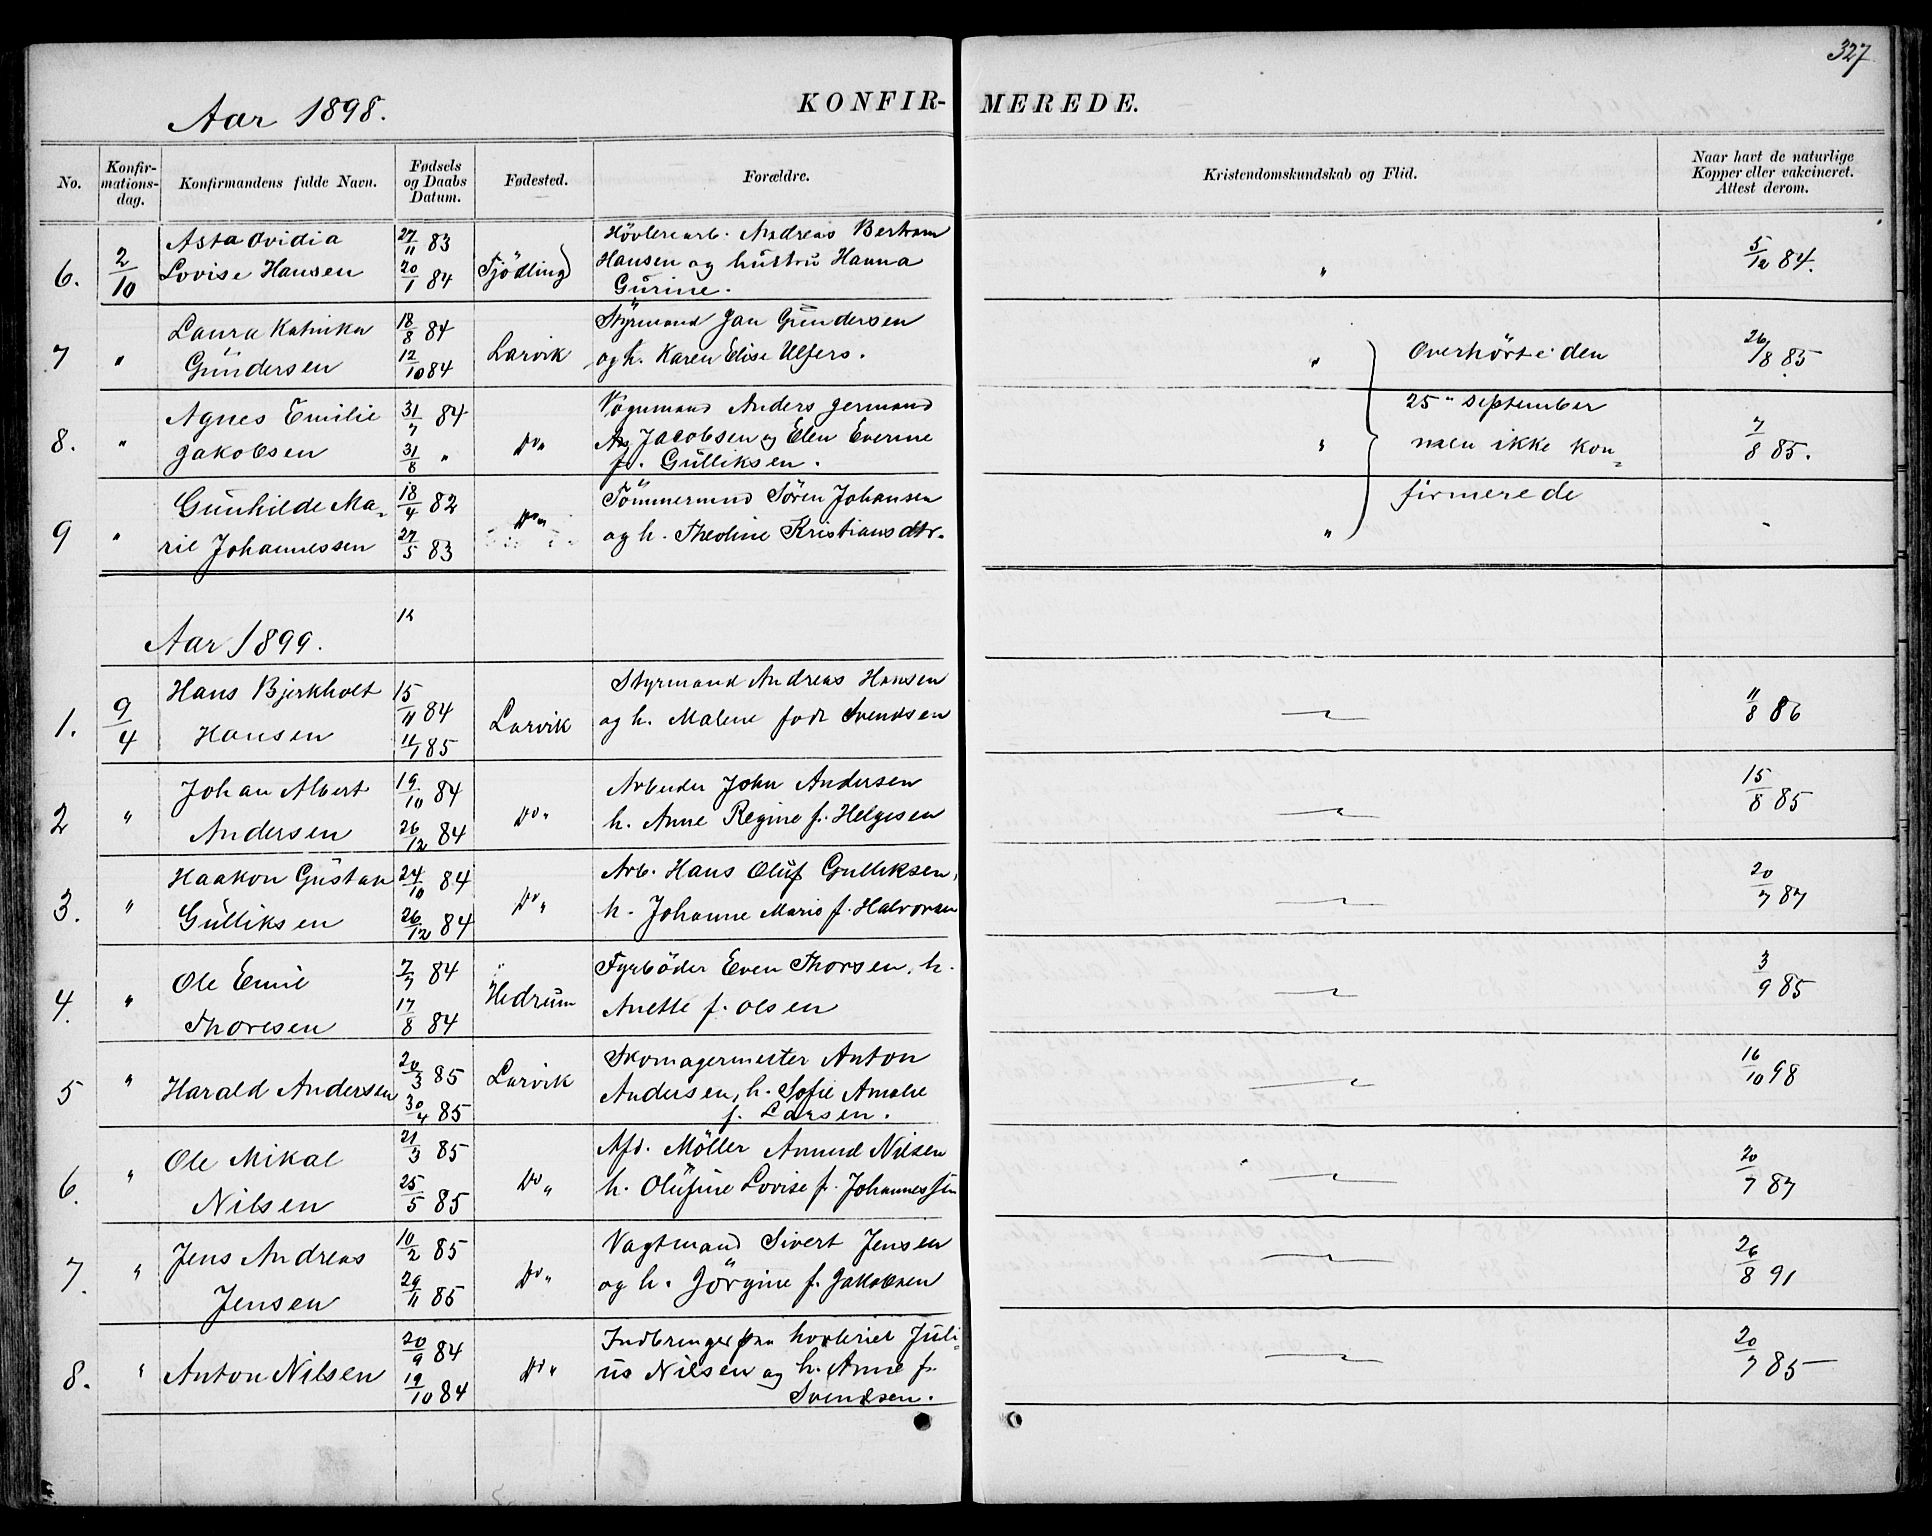 327
Aar 1898.
KONFIR-MEREDE.
No.
Konfir-mations-dag.
Konfirmandens fulde Navn.
Fødsels og Daabs Datum.
Fødested.
Forældre.
Kristendomskundskab og Flid.
Naar havt de naturlige Kopper eller vakcineret. Attest derom.
6. 2/10 Asta Ovidia 27/11 83 Tjödling Hövlerearb. Andreas Bertram " 5/12 84.
Lovise Hansen 20/1 84 Hansen og hustru Hanna
Gurine.
7 " Laura Katinka 18/8 84 Larvik Styrmand Jan Gundersen " Overhørte den 26/8 85
Gundersen 12/10 84 og h. Karen Elise Ulfers.
8. " Agnes Emilie 31/7 84 Do " Anders Germand " 25 " September 7/8 85.
Jakobsen 31/8 " Jacobsen og Elen Everine men ikke kon-
f. Gulliksen.
9 " Gunhilde Ma- 18/4 82 Do " Tömmermand Sören Johansen " firmerede -
rie Johannessen 27/5 83 og h. Theoline Kristiansdtr.
12
Aar 1899.
1. 9/4 Hans Bjerkholt 15/11 84 Larvik Styrmand Andreas Hansen 11/8 86
Hansen 11/1 85 og h. Malene född Svendsen
2 " Johan Albert 19/10 84 Do " Arbeider John Andersen 15/8 85
Andersen 26/12 84 h. Anne Regine f. Helgesen
3. " Haakon Gustav 24/10 84 Do " Arb. Hans Oluf Gulliksen, 20/7 87
Gulliksen 26/12 84 h. Johanne Marie f. Halvorsen
4. " Ole Emil 7/7 84 Hedrum Fyrböder Even Thorsen, h. 3/9 85
Thoresen 17/8 84 Anette f. Olsen
5 " Harald Andersen 20/3 85 Larvik Skomagermester Anton 16/10 98
30/4 85 Andersen, h. Sofie Amalie
f. Larsen.
6. " Ole Mikal 21/3 85 Do " Afd. Möller Amund Nilsen 20/7 87
Nilsen 25/5 85 h. Olufine Lovise f. Johannessen
7. " Jens Andreas 10/2 85 Do " Vagtmand Sivert Jensen 26/8 91
Jensen 29/11 85 og h. Jörgine f. Jakobsen
8. " Anton Nilsen 20/9 84 Do " Indbringer paa hövleriet Juli- 20/7 85
19/10 84 us Nilsen og h. Anne f.
Svendsen.